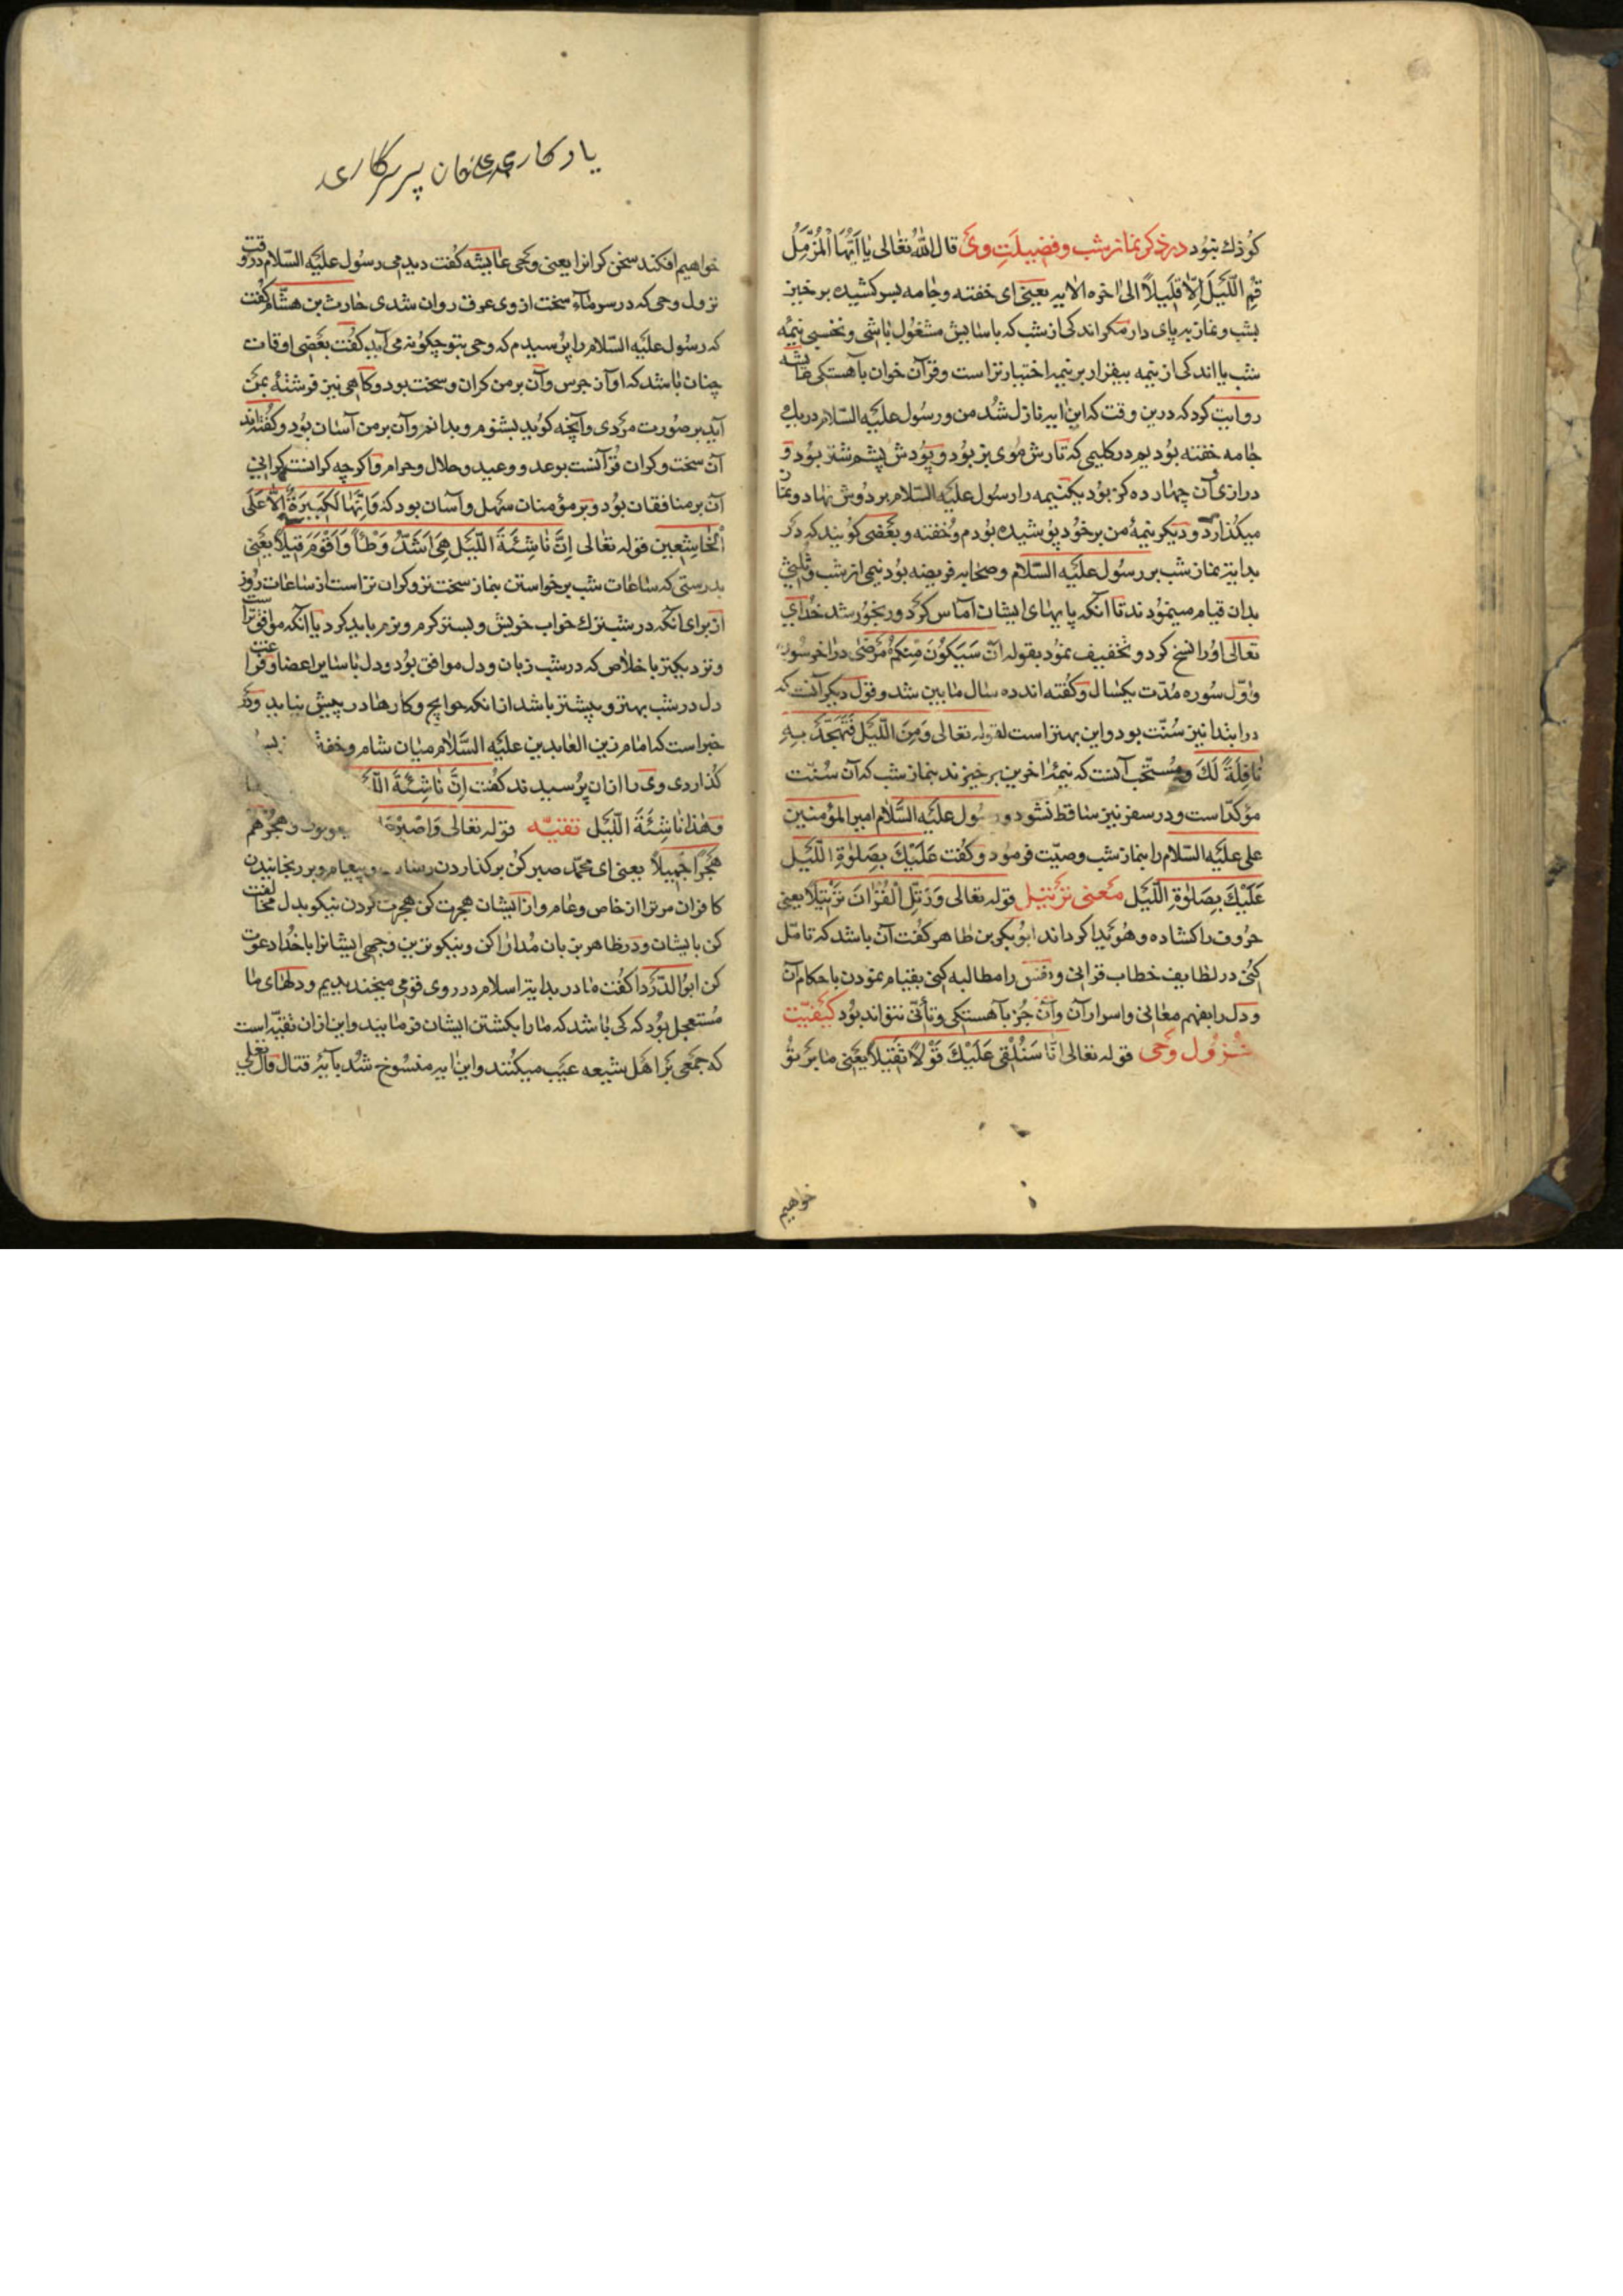 کوذك نبود در ذکر نماز شب و فضیلت وی قال الله تعالی یا ایها المزمل
قم اللیل الا قلیلا الی اخره الایه یعنی ای خفته و جامه بسر کشیده برخیز
بشب و نماز به پای دار مکر اندکی از شب که باسایش مشغول باشی و نخسبی نیمه
شب یا اندکی از نیمه بیفزا و بر نیمه اختیار تراست و قرآن خوان بآهستکی عایشه
روایت کرد که درین وقت که این ایه نازل شد من و رسول علیه السلام در یك
جامه خفته بودیم در کلیمی که تارش موی بز بود و پودش پشم شتر بود و
درازی آن چهارده کز بود یکنیمه را رسول علیه السلام بر دوش نهاد و نماز
میکذارد و دیکر نیمه من بر خود پوشیده بودم و خفته و بعضی کویند که در
بدایت نماز شب بر رسول علیه السلام و صحابه فریضه بود نیمی از شب و ثلثی
بدان قیام مینمودند تا آنکه پایهای ایشان آماس کرد و رنجور شد خدای
تعالی او را نسخ کرد و تخفیف نمود بقوله ان سیکون منکم مرضی در اخر سوره
و اول سوره مدت یکسال و کفته اند ده سال مابین شد و قول دیکر آنست که
در ابتدا نیز سنت بود و این بهتر است لقوله تعالی و من اللیل فتهجد به
نافلة لك و مستحب آنست که نیمه اخرین برخیزند بنماز شب که آن سنت
مؤکد است و در سفر نیز ساقط نشود و رسول علیه السلام امیر المؤمنین
علی علیه السلام را بنماز شب وصیت فرمود و کفت علیك بصلوة اللیل
علیك بصلوة اللیل معنی ترتیل قوله تعالی و رتل القران ترتیلا یعنی
حروف را کشاده و هویدا کرداند ابوبکر بن طاهر کفت آن باشد که تامل
کنی در لطایف خطاب قرانی و نفس را مطالبه کنی بقیام نمودن باحکام آن
و دل را بفهم معانی و اسرار آن و آن جز بآهستکی و تأنی نتواند بود کیفیت
نزول وحی قوله تعالی انا سنلقی علیك قولا ثقیلا یعنی ما بر تو
خواهیم
یادکاری پسر سرکاری
خواهیم افکند سخن کرانرا یعنی وحی عایشه کفت دیدمی رسول علیه السلام در وقت
نزول وحی که در سرماء سخت از وی عرق روان شدی حارث بن هشام کفت
که رسول علیه السلام را پرسیدم که وحی بتو چکونه می آید کفت بعضی اوقات
چنان باشد که آواز جرس و آن بر من کران و سخت بود و کاهی نیز فرشته بمن
آید بر صورت مردی و آنچه کوید بشنوم و بدانم و آن بر من آسان بود و کفته اند
آن سخت و کران قرآنست بوعد و وعید و حلال و حرام و اکرچه کرانست کرانی
آن بر منافقان بود و بر مؤمنان سهل و آسان بود که و انها لکبیرة الا علی
الخاشعین قوله تعالی ان ناشئة اللیل هی اشد وطأ و اقوم قیلا یعنی
بدرستی که ساعات شب برخواستن بنماز سخت تر و کران تراست از ساعات روز
از برای آنکه در شب ترك خواب خویش و بستر کرم و نرم باید کرد یا آنکه موافق تراست
و نزدیکتر باخلاص که در شب زبان و دل موافق بود و دل با سایر اعضا و فراغت
دل در شب بهتر و بیشتر باشد از انکه حوایج و کارها در پیش نیاید و در
خبر است که امام زین العابدین علیه السلام میان شام و خفتن
کذاردی ویرا ازان پرسیدند کفت ان ناشئة
و هذا ناشئة اللیل تقیه قوله تعالی و اصبر و اهجرهم
هجرا جمیلا یعنی ای محمد صبر کن بر کذاردن رسالت و پیغام و بر رنجانیدن
کافران مر ترا از خاص و عام و از ایشان هجرت کن هجرت کردن نیکو بدل مخالفت
کن با یشان و در ظاهر بزبان مدارا کن و بنیکوترین وجهی ایشانرا با خدا دعوت
کن ابو الدردا کفت ما در بدایت اسلام در روی قومی میخندیدیم و دلهای ما
مستعجل بود که کی باشد که ما را بکشتن ایشان فرمایند و این ازان تقیه است
که جمعی بر اهل شیعه عیب میکنند و این ایه منسوخ شد بآیه قتال قال تعالی